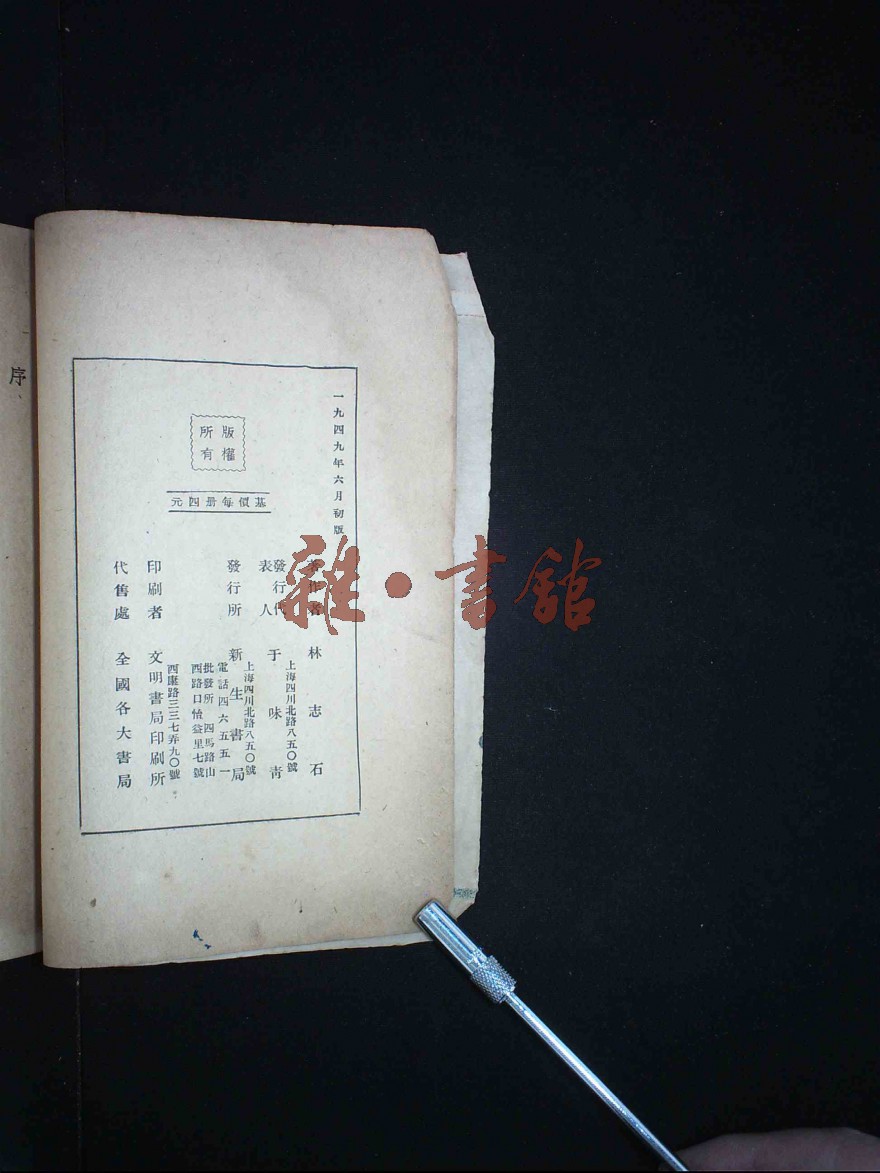 序
一九四九年六月初版
版權
所有
基價每册四元
著作者 林志石
發行代
表人 于味青
上海四川北路八五〇號
發行所 新生書局
上海四川北路八五〇號
電話四六五五一
批發所 四馬路山
西路口懷益里七號
印刷者 文明書局印刷所
西康路三三七弄九〇號
代售處 全國各大書局
雜·書館